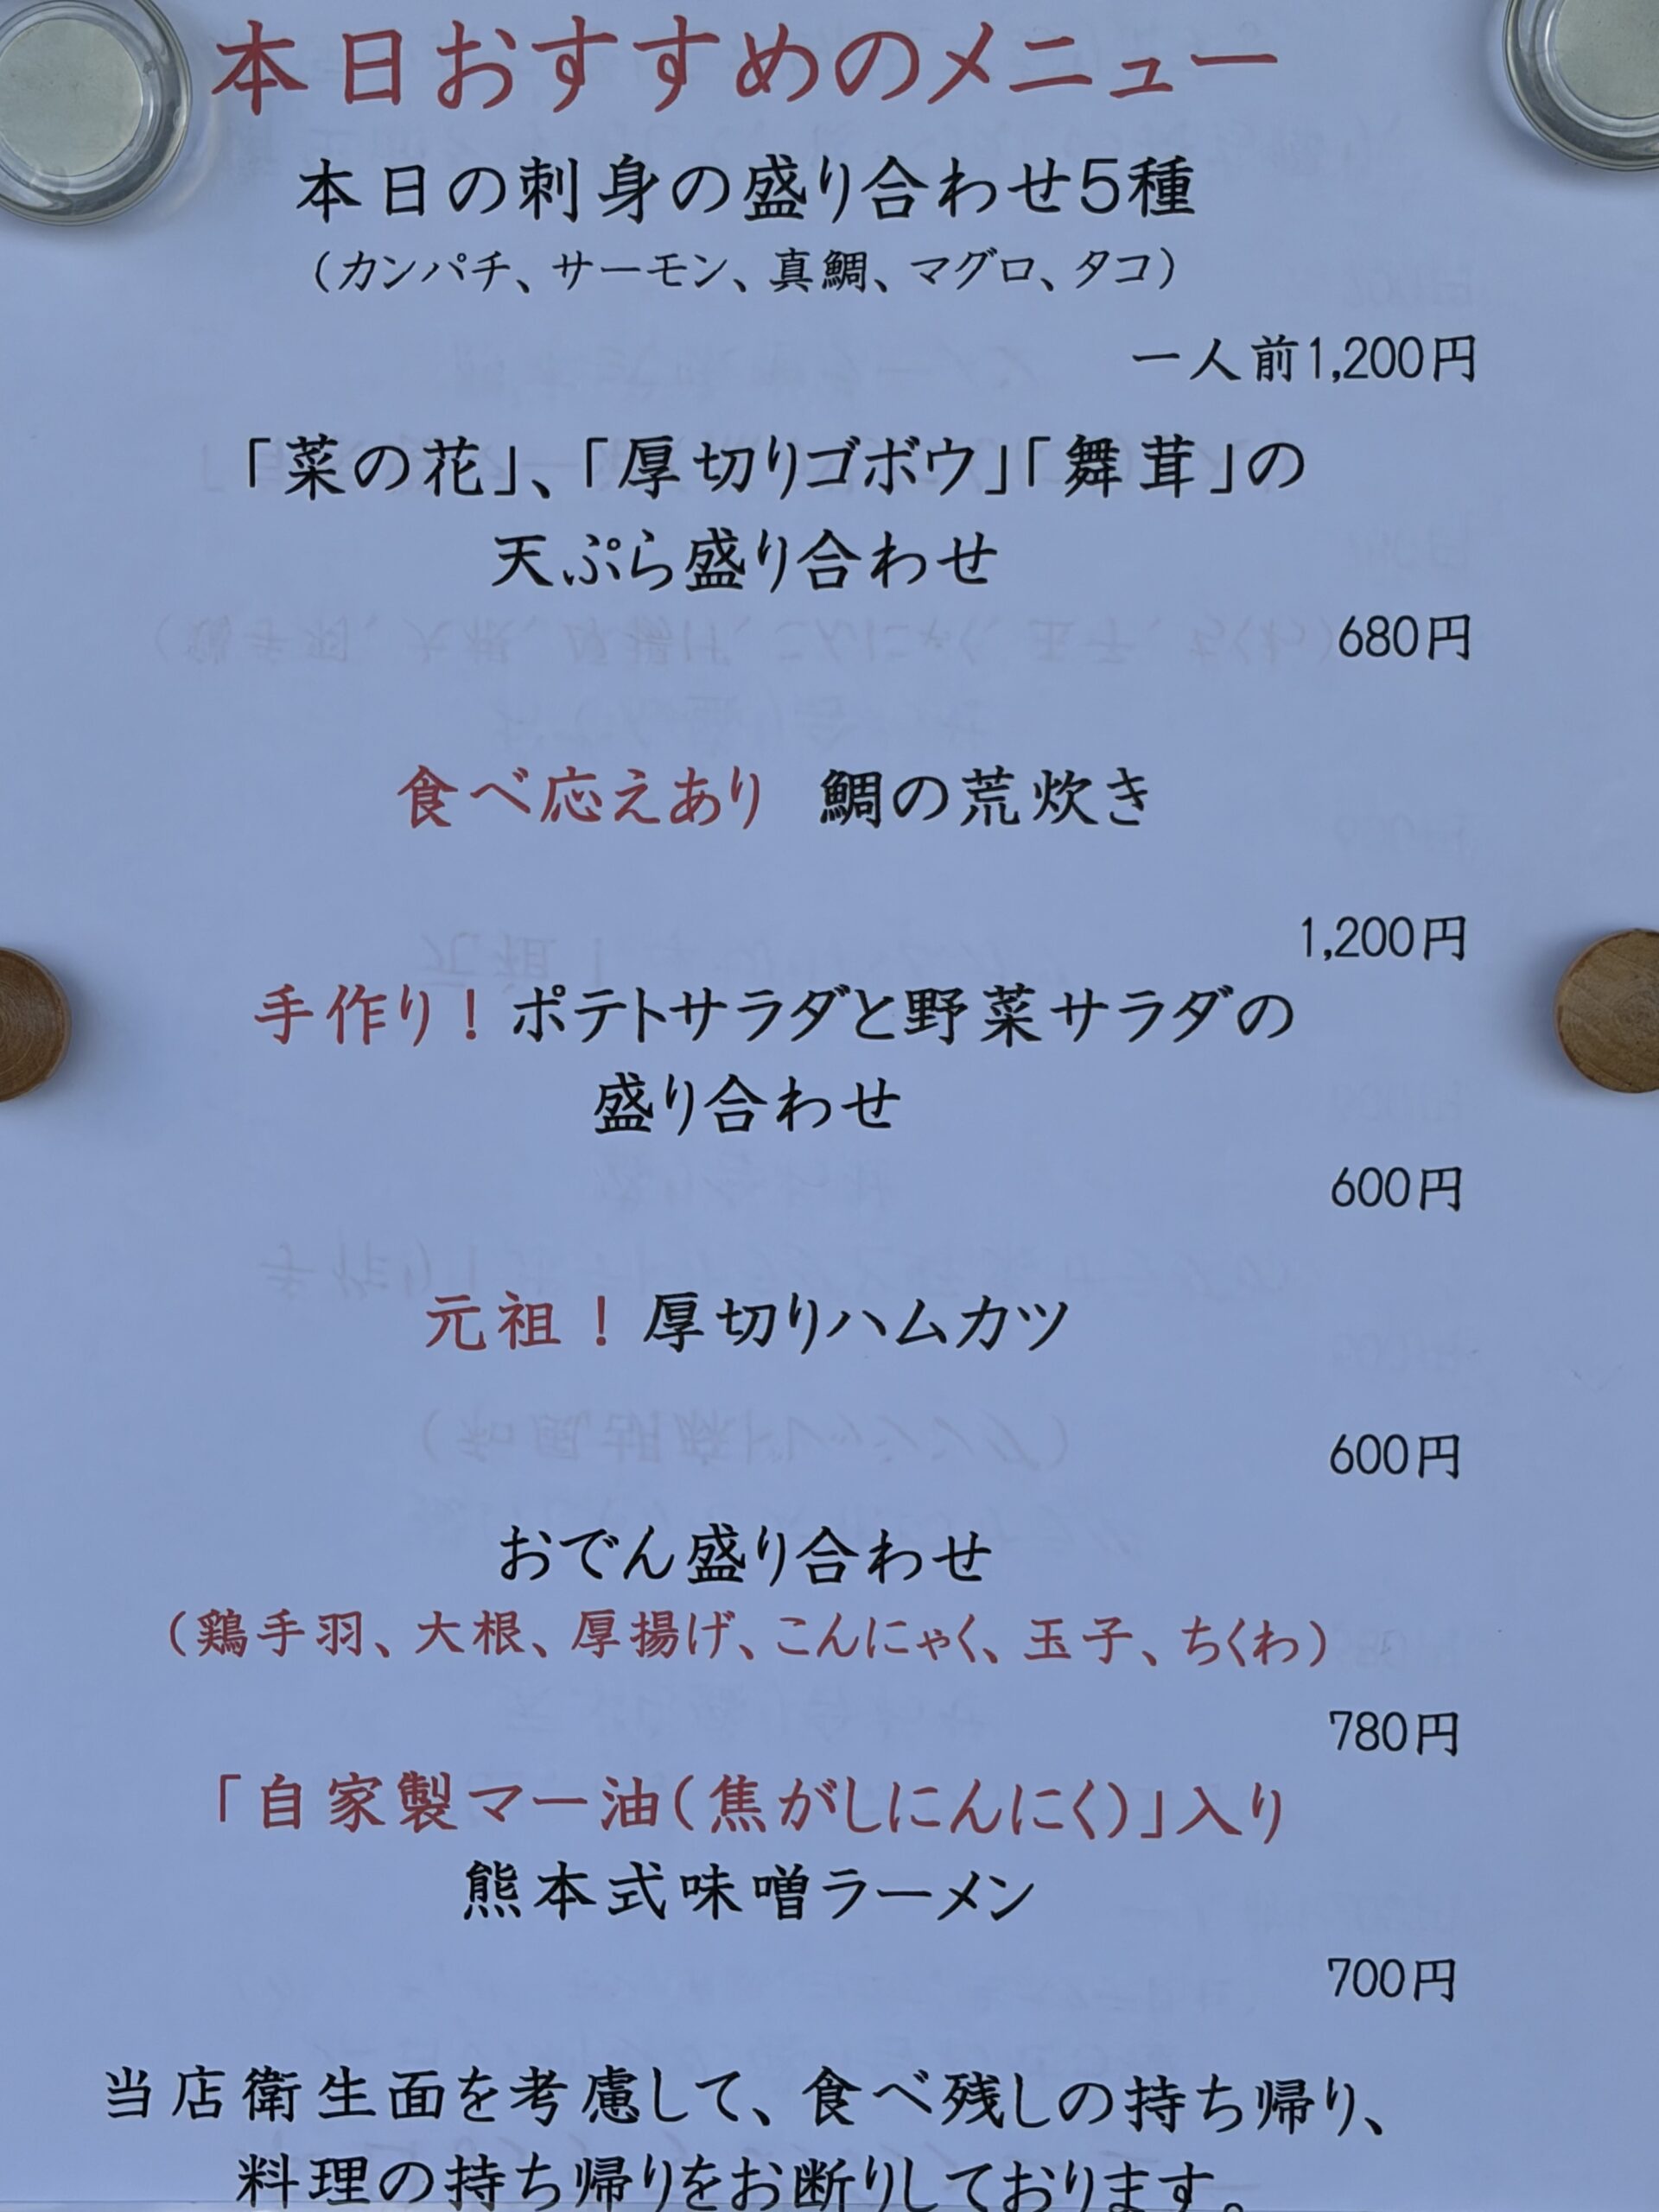 本日おすすめのメニュー
本日の刺身の盛り合わせ5種
（カンパチ、サーモン、真鯛、マグロ、タコ）
一人前1,200円
「菜の花」、「厚切りゴボウ」「舞茸」の
天ぷら盛り合わせ
680円
食べ応えあり　鯛の荒炊き
1,200円
手作り！ポテトサラダと野菜サラダの
盛り合わせ
600円
元祖！厚切りハムカツ
600円
おでん盛り合わせ
（鶏手羽、大根、厚揚げ、こんにゃく、玉子、ちくわ）
780円
「自家製マー油（焦がしにんにく）」入り
熊本式味噌ラーメン
700円
当店衛生面を考慮して、食べ残しの持ち帰り、
料理の持ち帰りをお断りしております。